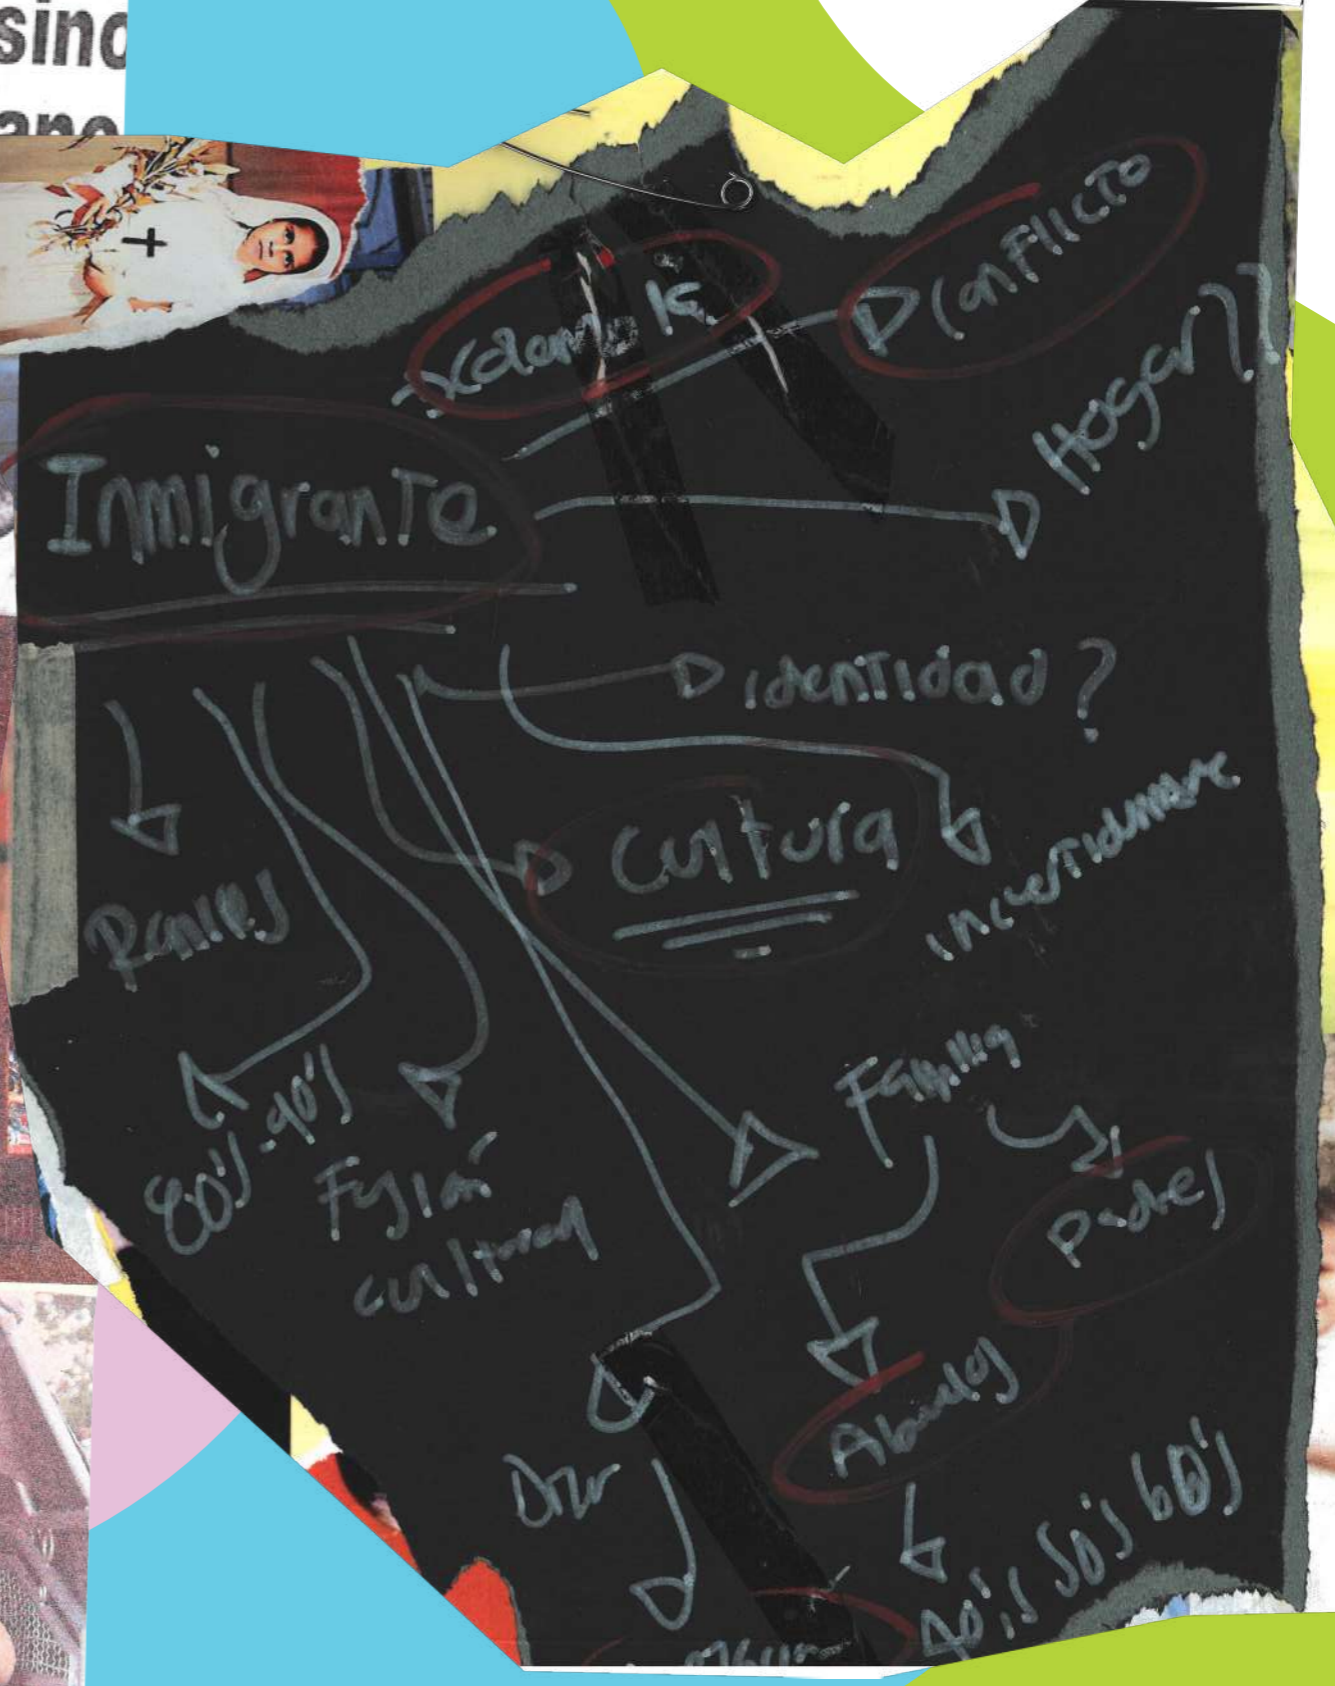 sino
ano
Conflicto
Hogar??
Inmigrante
identidad?
Cultura
incertidumbre
Raíces
80's-90's
Fusión
cultural
Familia
Padres
Abuelos
40's 50's 60's